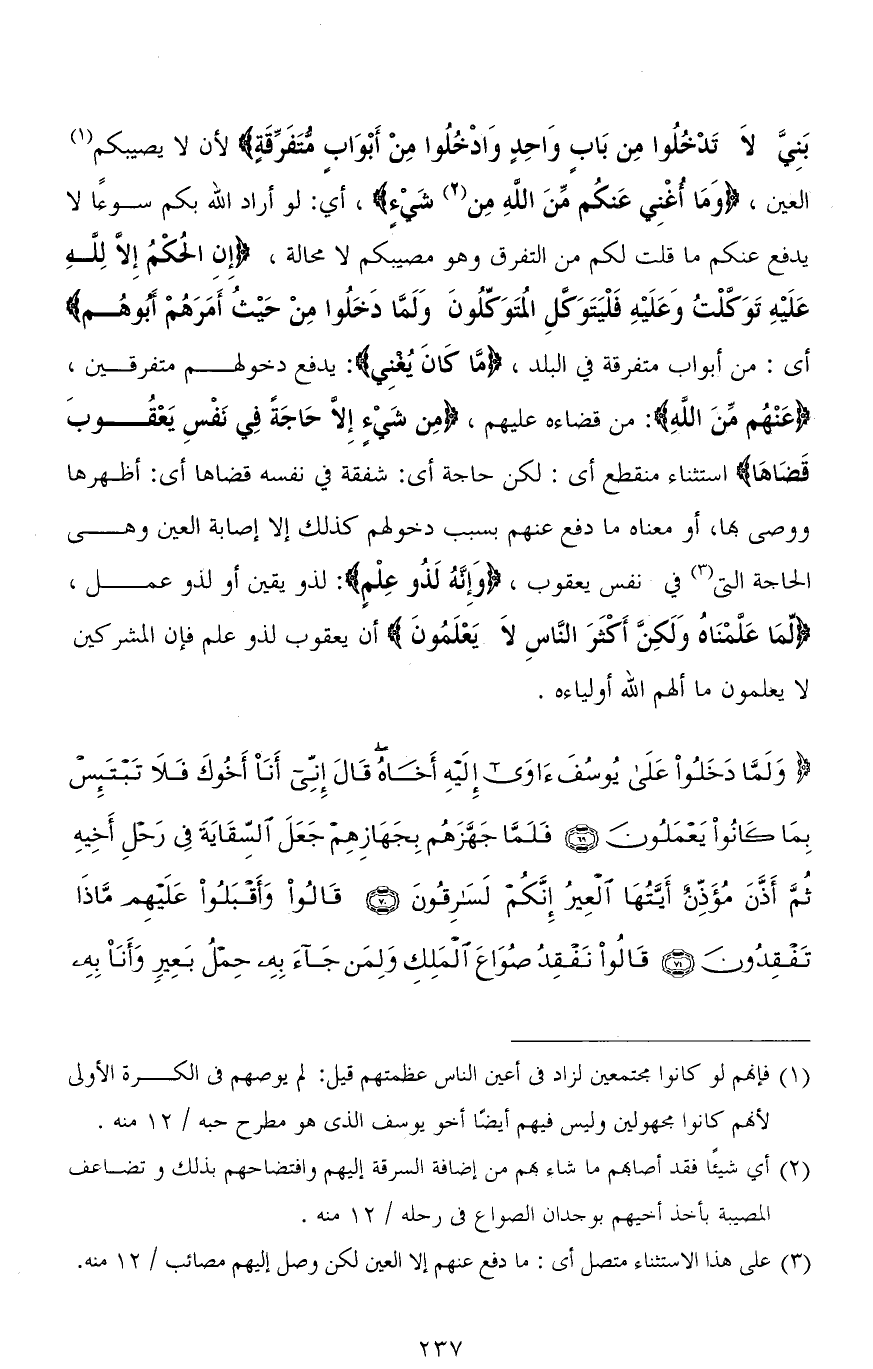 بَنِيَّ لاَ تَدْخُلُوا مِن بَابٍ وَاحِدٍ وَادْخُلُوا مِنْ أَبْوَابٍ مُّتَفَرِّقَةٍ﴾ لأن لا يصيبكم(١)
العين ، ﴿وَمَا أُغْنِي عَنكُم مِّنَ اللَّهِ مِن(٢) شَيْءٍ﴾ ، أي: لو أراد الله بكم سوءًا لا
يدفع عنكم ما قلت لكم من التفرق وهو مصيبكم لا محالة ، ﴿إِنِ الحُكْمُ إِلاَّ لِلَّهِ
عَلَيْهِ تَوَكَّلْتُ وَعَلَيْهِ فَلْيَتَوَكَّلِ المُتَوَكِّلُونَ وَلَمَّا دَخَلُوا مِنْ حَيْثُ أَمَرَهُمْ أَبُوهُم﴾
أى : من أبواب متفرقة في البلد ، ﴿مَّا كَانَ يُغْنِي﴾: يدفع دخولهم متفرقين ،
﴿عَنْهُم مِّنَ اللَّهِ﴾: من قضاءه عليهم ، ﴿مِن شَيْءٍ إِلاَّ حَاجَةً فِي نَفْسِ يَعْقُوبَ
قَضَاهَا﴾ استثناء منقطع أى : لكن حاجة أى: شفقة في نفسه قضاها أى: أظهرها
ووصى بها، أو معناه ما دفع عنهم بسبب دخولهم كذلك إلا إصابة العين وهى
الحاجة التى(٣) في نفس يعقوب ، ﴿وَإِنَّهُ لَذُو عِلْمٍ﴾: لذو يقين أو لذو عمل ،
﴿لِّمَا عَلَّمْنَاهُ وَلَكِنَّ أَكْثَرَ النَّاسِ لاَ يَعْلَمُونَ ﴾ أن يعقوب لذو علم فإن المشركين
لا يعلمون ما ألهم الله أولياءه .
﴿ وَلَمَّا دَخَلُواْ عَلَىٰ يُوسُفَ ءَاوَىٰٓ إِلَيْهِ أَخَاهُۖ قَالَ إِنِّيٓ أَنَا۠ أَخُوكَ فَلَا تَبْتَئِسْ
بِمَا كَانُواْ يَعْمَلُونَ ٦٩ فَلَمَّا جَهَّزَهُم بِجَهَازِهِمْ جَعَلَ ٱلسِّقَايَةَ فِى رَحْلِ أَخِيهِ
ثُمَّ أَذَّنَ مُؤَذِّنٌ أَيَّتُهَا ٱلْعِيرُ إِنَّكُمْ لَسَٰرِقُونَ ٧٠ قَالُواْ وَأَقْبَلُواْ عَلَيْهِم مَّاذَا
تَفْقِدُونَ ٧١ قَالُواْ نَفْقِدُ صُوَاعَ ٱلْمَلِكِ وَلِمَن جَآءَ بِهِۦ حِمْلُ بَعِيرٍ وَأَنَا۠ بِهِۦ
(١) فإنهم لو كانوا مجتمعين لزاد فى أعين الناس عظمتهم قيل: لم يوصهم فى الكرة الأولى
لأنهم كانوا مجهولين وليس فيهم أيضًا أخو يوسف الذى هو مطرح حبه / ١٢ منه .
(٢) أي شيئًا فقد أصابهم ما شاء بهم من إضافة السرقة إليهم وافتضاحهم بذلك و تضاعف
المصيبة بأخذ أخيهم بوجدان الصواع فى رحله / ١٢ منه .
(٣) على هذا الاستثناء متصل أى : ما دفع عنهم إلا العين لكن وصل إليهم مصائب / ١٢ منه.
٢٣٧